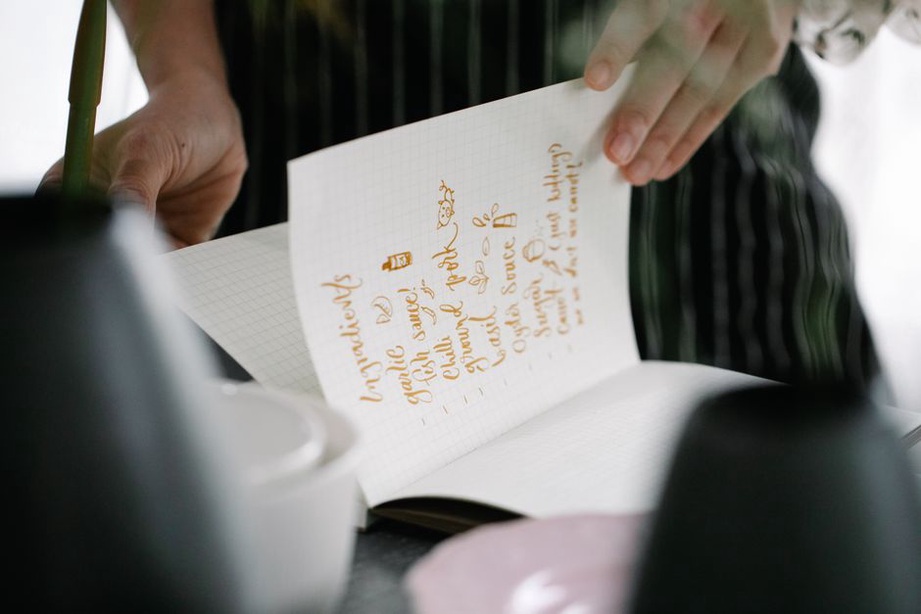 Ingredients
- garlic
- fish sauce!
- Chilli
- ground pork
- basil
- Oyster Sauce
- Sugar
- Carrot (just kidding)
we do not use carrot!